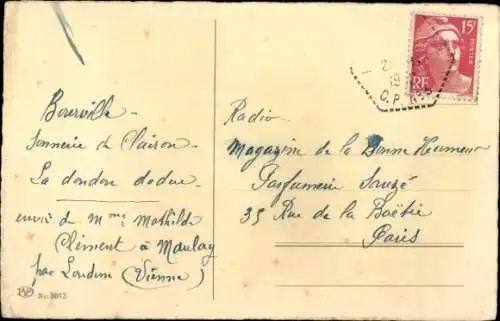 Bourville -
Sonnerie de Clairon -
La dondon dodue -
envoi de Mme Mathilde
Clément à Maulay
par Loudun (Vienne)
No. 5013
15F
POSTES
RF
Radio
Magazine de la Bonne Humeur
Parfumerie Sauzé
35 Rue de la Boëtie
Paris